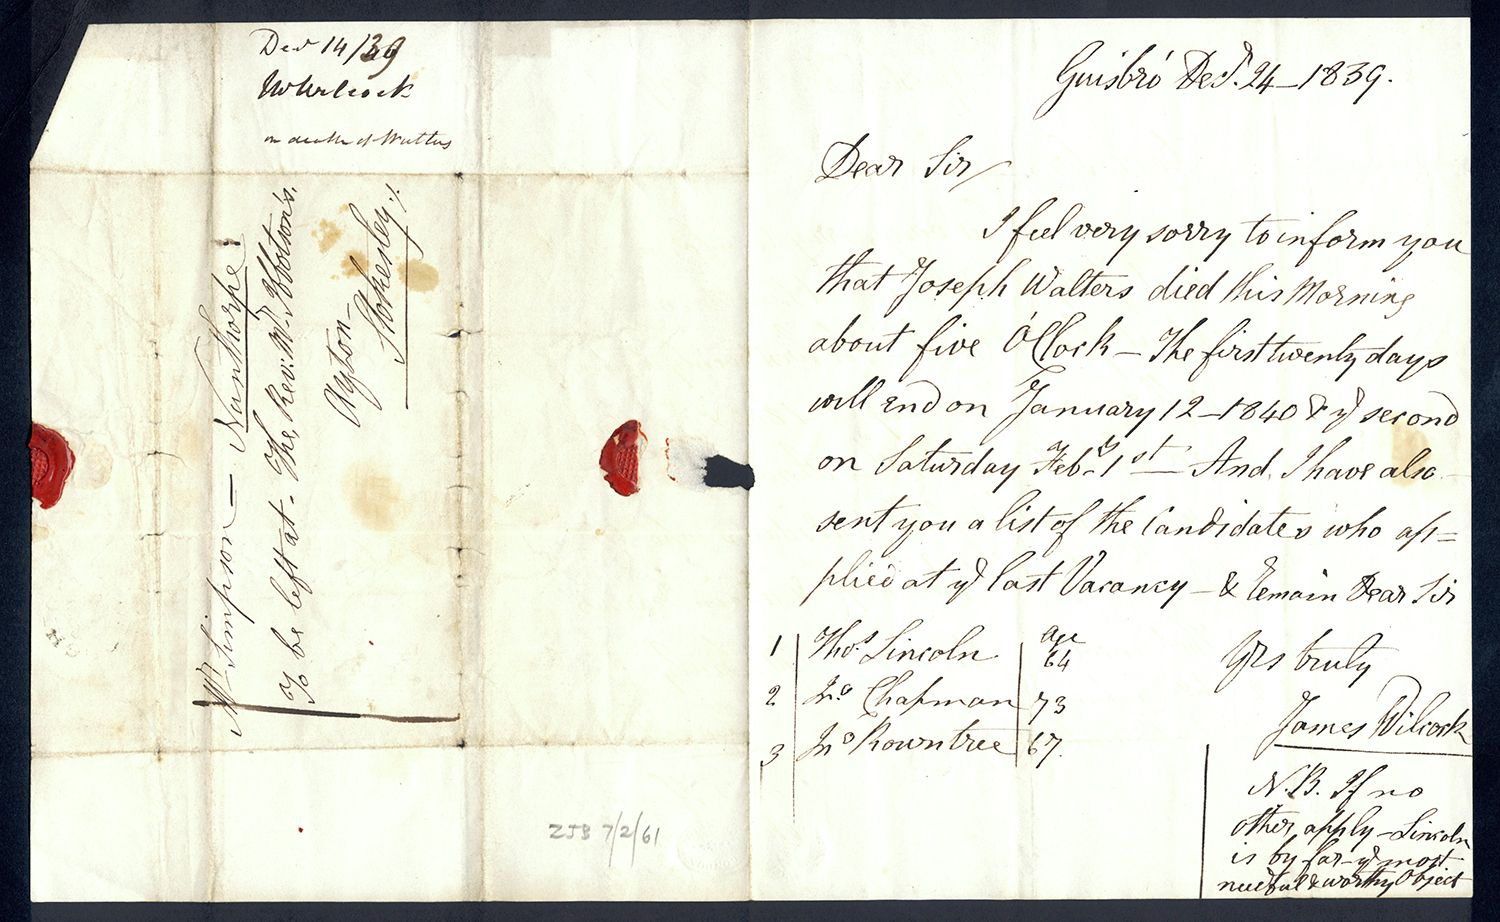 Decr 14/39
Wilcock
on death of Walters
Mr. Simpson — Nunthorpe.
To be left at - The Revd. Wm. Ibbotson's.
Ayton—
Stokesley.
ZJB 7/2/61
Guisbro' Decr. 24 – 1839.
Dear Sir
I feel very sorry to inform you
that Joseph Walters died this Morning
about five O'Clock – The first twenty days
will end on January 12 – 1840 & ye second
on Saturday Feby. 1st — And, I have also
sent you a list of the Candidates who ap=
plied at ye last Vacancy – & remain Dear Sir
Yrs truly
James Wilcock
Age
1 Thos. Lincoln 64
2 Jno Chapman 73
3 Jno Rowntree 67.
N.B. If no
other apply – Lincoln
is by far ye most
needful & worthy Object